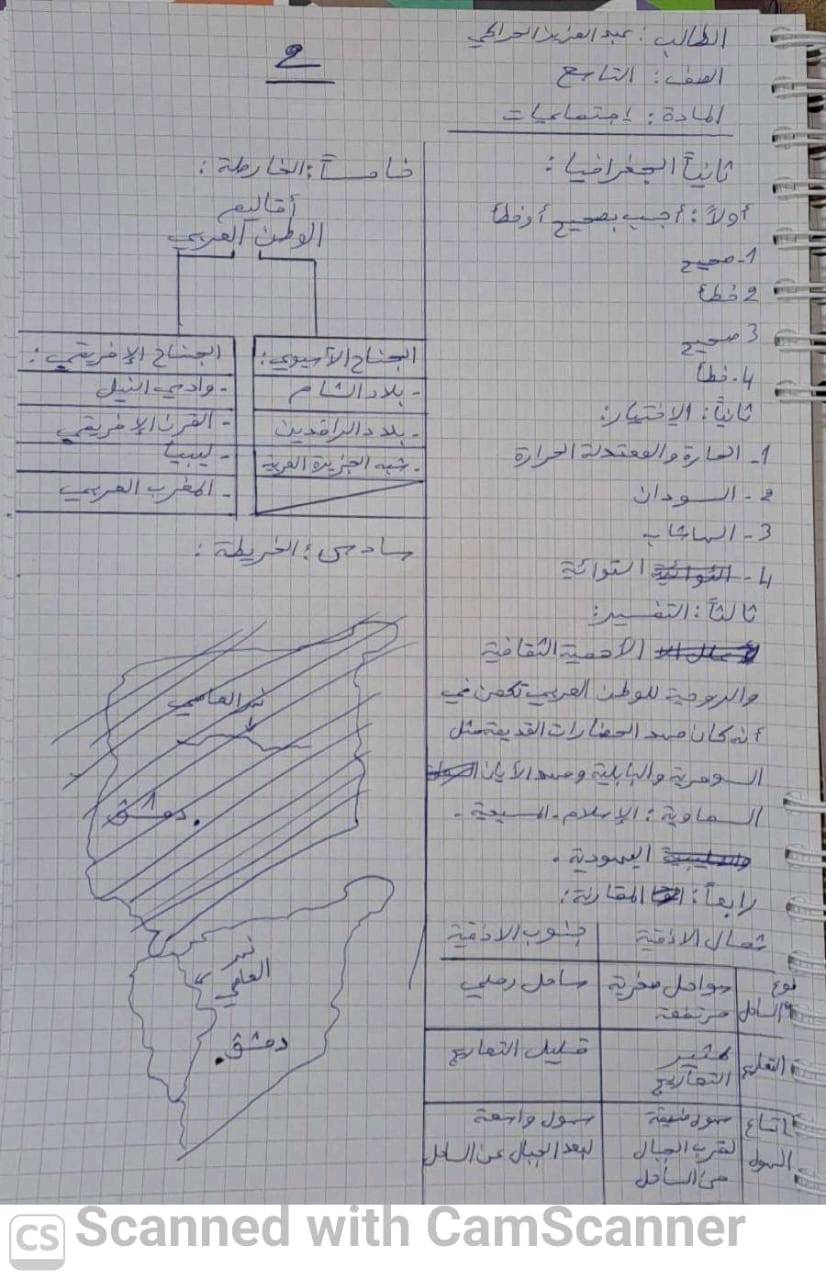 الطالب: عبد العزيز الحراكي
الصف: التاسع
المادة: اجتماعيات
2
ثانياً الجغرافيا:
أولاً: أجب بصحيح أو خطأ
1- صحيح
2 خطأ
3 صحيح
4- خطأ
ثانياً: الاختيار:
1- الحارة والمعتدلة الحرارة
2- السودان
3- الهاشاب
4- التوائية
ثالثاً: التفسير:
الأهمية الثقافية
والروحية للوطن العربي تكمن في
أنه كان مهد الحضارات القديمة مثل
السومرية والبابلية ومهد الأديان
السماوية: الإسلام - المسيحية -
اليهودية.
رابعاً: المقارنة:
شمال الاذقية جنوب الاذقية
نوع الساحل سواحل صخرية مرتفعة ساحل رملي
التعاريج كثير التعاريج قليل التعاريج
اتساع السهول سهول ضيقة لقرب الجبال من الساحل سهول واسعة لبعد الجبال عن الساحل
خامساً: الخارطة:
أقاليم
الوطن العربي
الجناح الآسيوي: الجناح الإفريقي:
- بلاد الشام - وادي النيل
- بلاد الرافدين - القرن الإفريقي
- شبه الجزيرة العربية - ليبيا
- المغرب العربي
سادس: الخريطة:
نهر العاصي
دمشق
نهر
العاصي
دمشق
CS Scanned with CamScanner